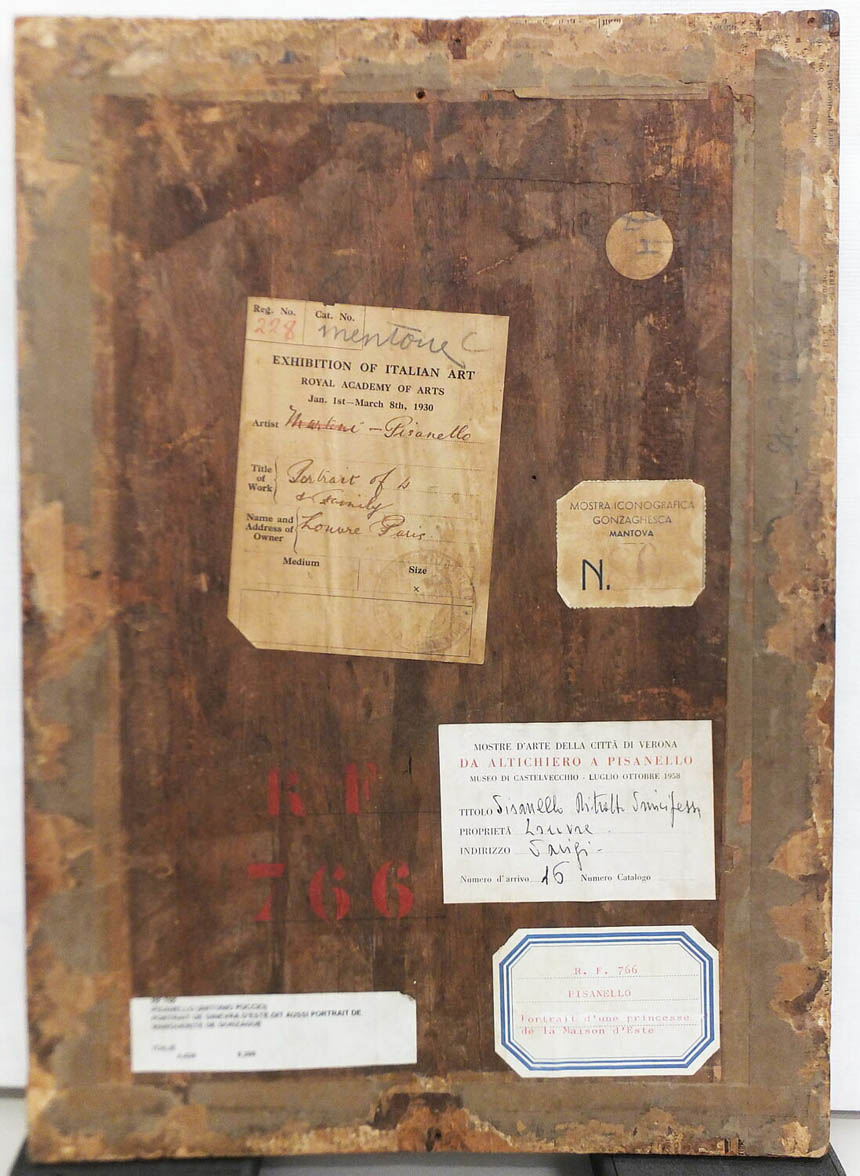 Reg. No. Cat. No.
228 mentone C
EXHIBITION OF ITALIAN ART
ROYAL ACADEMY OF ARTS
Jan. 1st—March 8th, 1930
Artist Martini – Pisanello
Title of Work Portrait of
Family
Name and Address of Owner Louvre Paris
Medium Size
×
MOSTRA ICONOGRAFICA
GONZAGHESCA
MANTOVA
N.
R F
766
MOSTRE D'ARTE DELLA CITTÀ DI VERONA
DA ALTICHIERO A PISANELLO
MUSEO DI CASTELVECCHIO - LUGLIO OTTOBRE 1958
TITOLO Pisanello Ritratto
PROPRIETÀ Louvre
INDIRIZZO Parigi -
Numero d'arrivo 16 Numero Catalogo
R. F. 766
PISANELLO
Portrait d'une princesse
de la Maison d'Este
PORTRAIT DE GINEVRA D'ESTE DIT AUSSI PORTRAIT DE
MARGUERITE DE GONZAGUE